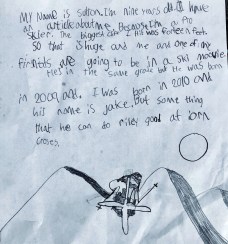 MY Name is Sutton. I'm nine years old. I have
an article about me Because I'm a Pro
Skier. The biggest I Hit was forteen feet
So that is huge and me and one of my
friends are going to be in a ski movie
He's in the same grade but He was born
in 2009 and I was born in 2010 and
his name is jake. but some thing
that he can do riley good at